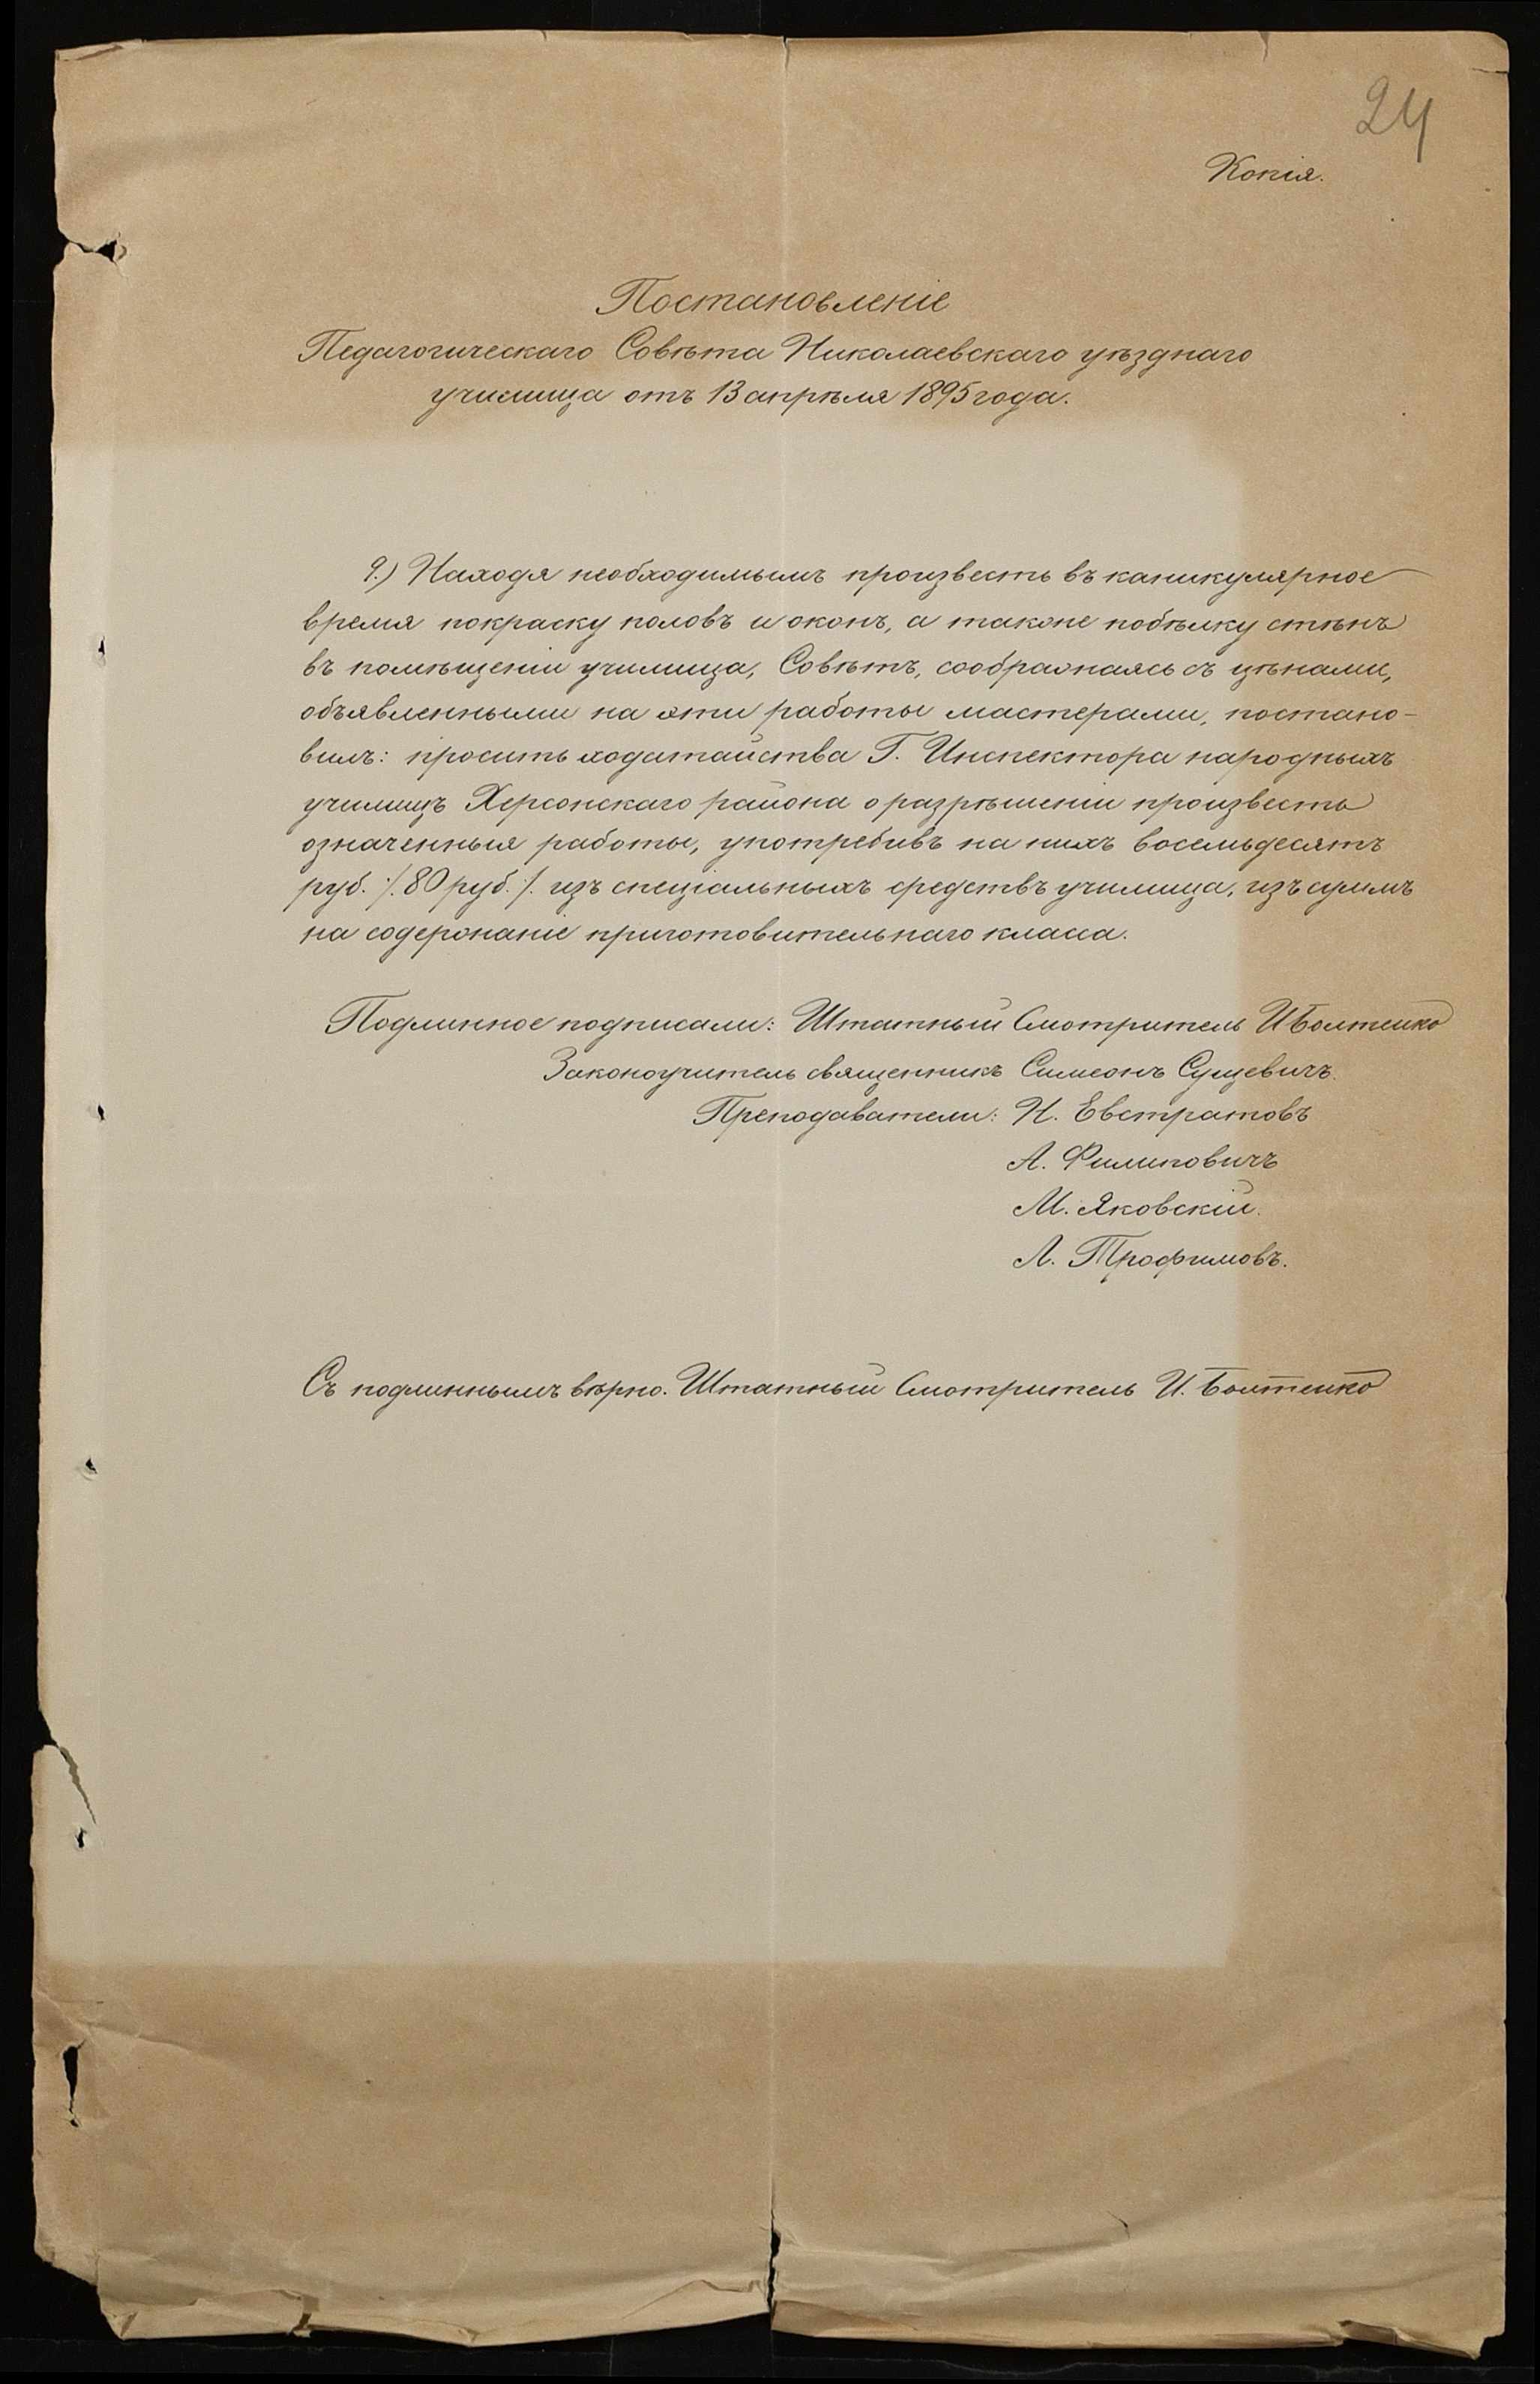 24
Копія.
Постановленіе
Педагогическаго Совѣта Николаевскаго уѣзднаго
училища отъ 13 апрѣля 1895 года.
9.) Находя необходимымъ произвесть въ каникулярное
время покраску половъ и оконъ, а также побѣлку стѣнъ
въ помѣщеніи училища, Совѣтъ, соображаясь съ цѣнами,
объявленными на эти работы мастерами, постано-
вилъ: просить ходатайства Г. Инспектора народныхъ
училищъ Херсонскаго района о разрѣшеніи произвесть
означенныя работы, употребивъ на нихъ восемьдесятъ
руб. /. 80 руб. /. изъ спеціальныхъ средствъ училища, изъ суммъ
на содержаніе приготовительнаго класса.
Подлинное подписали: Штатный Смотритель И Болтенко
Законоучитель священникъ Симеонъ Сущевичъ.
Преподаватели: Н. Евстратовъ
А. Филиповичъ
М. Яковскій.
Л. Трофимовъ.
Съ подлиннымъ вѣрно. Штатный Смотритель И. Болтенко